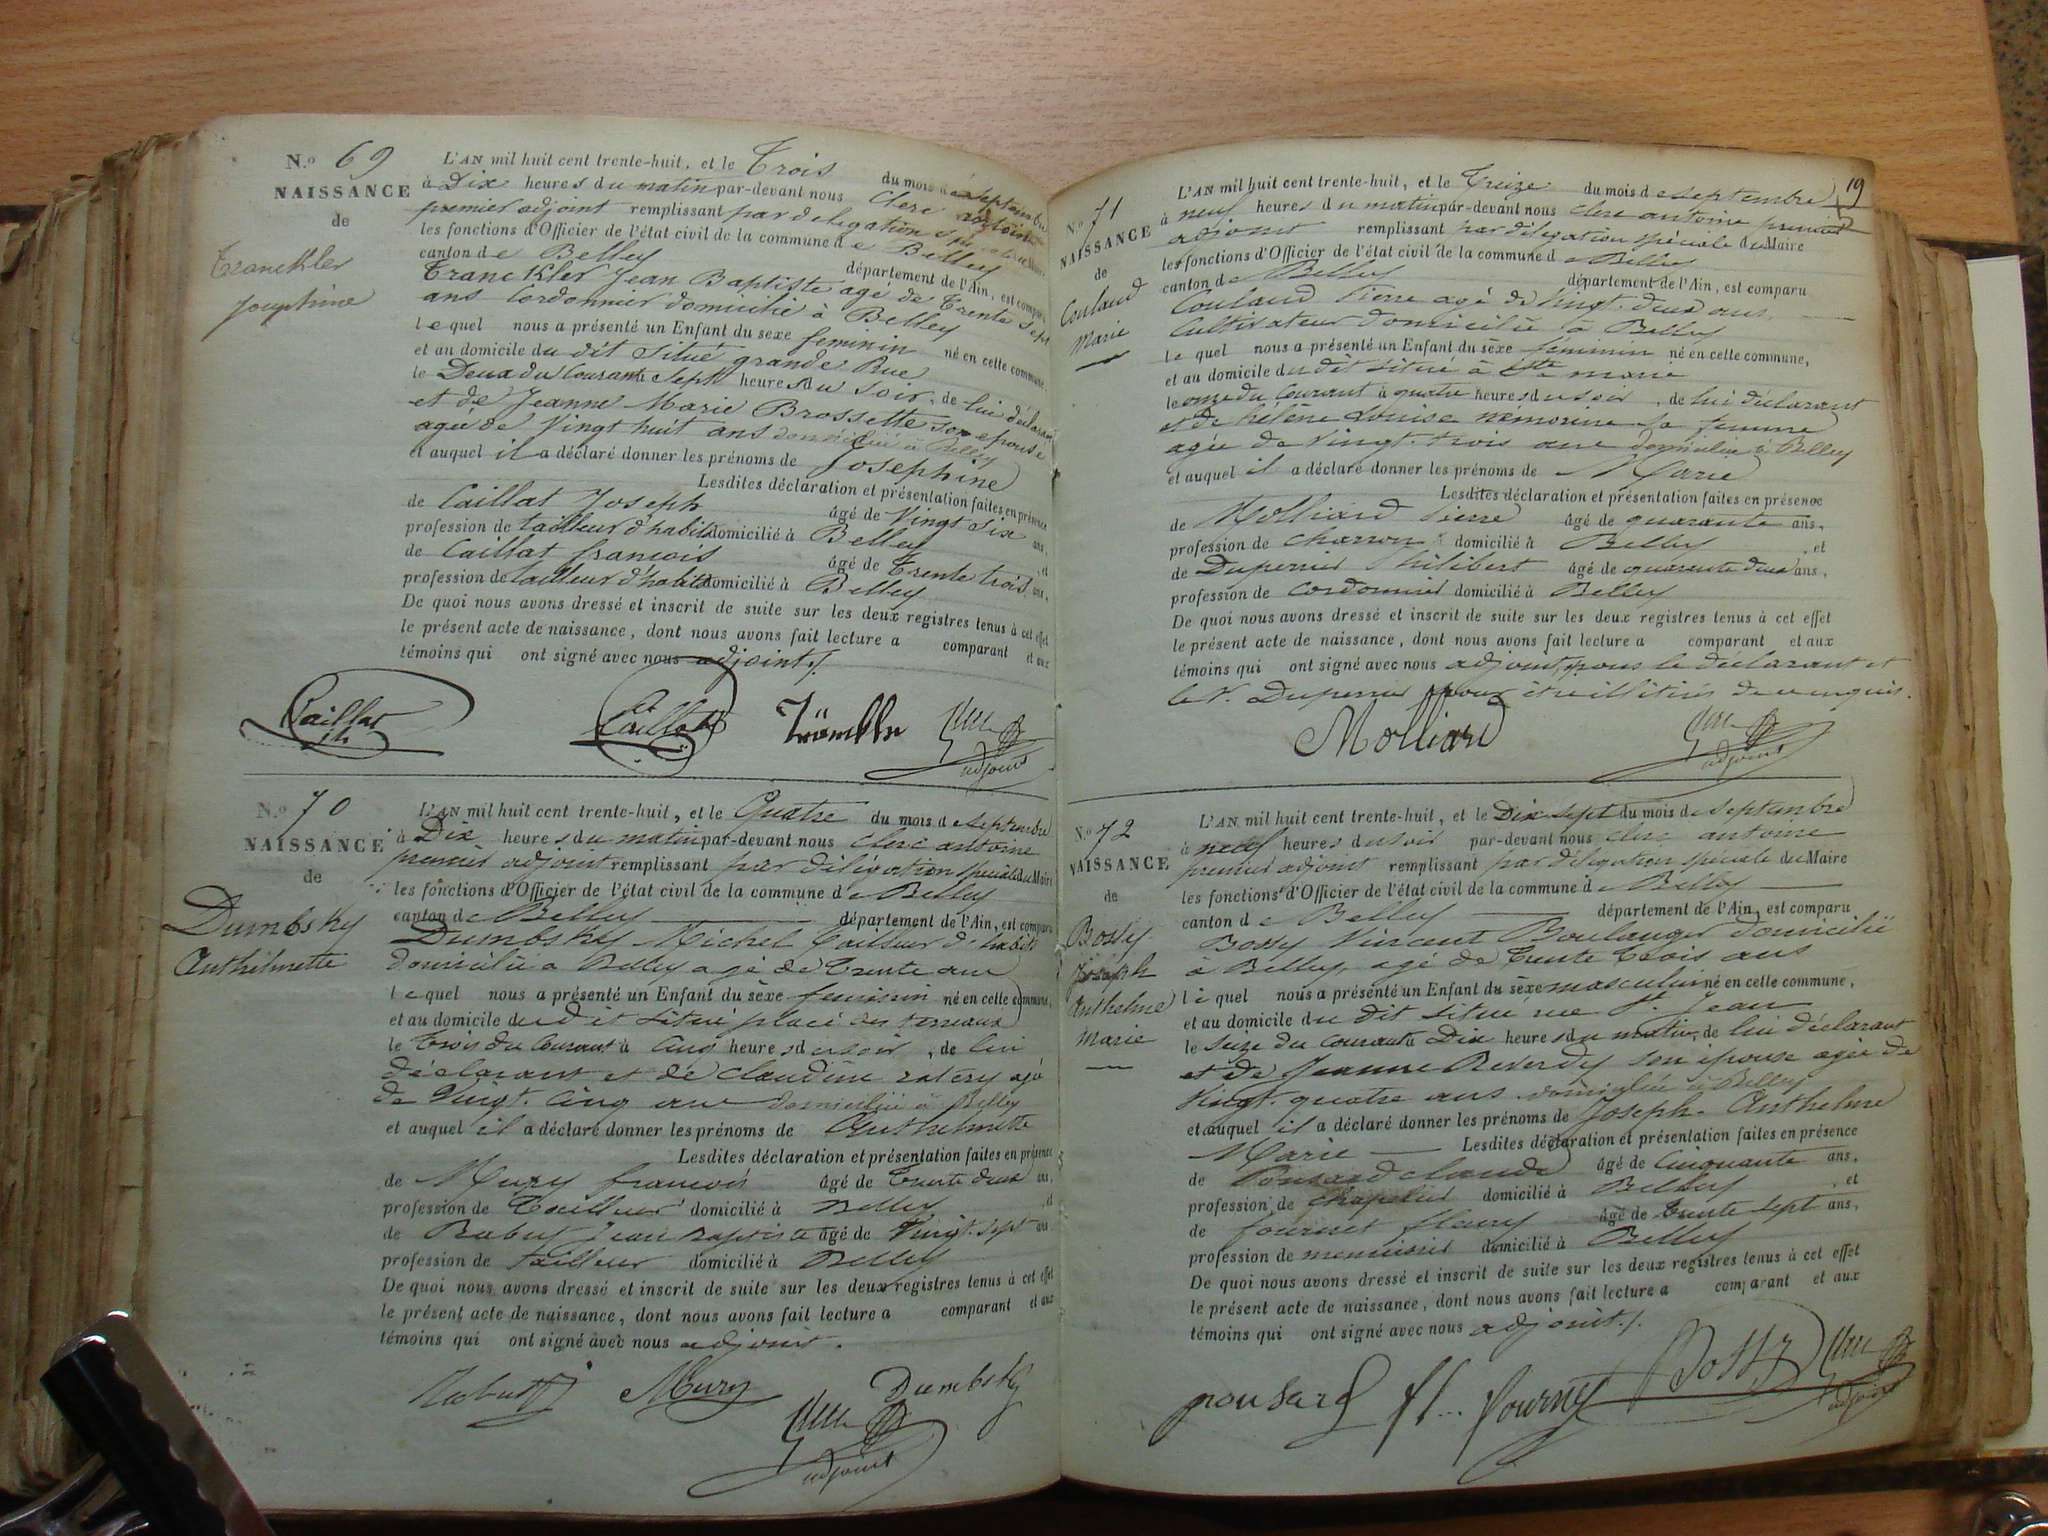 N.o 69
NAISSANCE
de
Tranckler
Josephine
L'AN mil huit cent trente-huit, et le Trois du mois de septembre
à Dix heures du matin par-devant nous Clerc antoine
premier adjoint remplissant par delegation
les fonctions d'Officier de l'état civil de la commune de Belley
canton de Belley département de l'Ain, est comparu
Tranckler Jean Baptiste agé de Trente sept
ans Cordonnier domicilié à Belley
le quel nous a présenté un Enfant du sexe feminin né en cette commune,
et au domicile du dit situé grande Rue
le Deux du Courant à sept heures du soir, de lui déclarant
et de Jeanne Marie Brossette son epouse
agée de Vingt huit ans domiciliée à Belley
et auquel il a déclaré donner les prénoms de Josephine
Lesdites déclaration et présentation faites en présence
de Caillat Joseph âgé de Vingt six ans,
profession de tailleur d'habits domicilié à Belley et
de Caillat françois âgé de Trente trois ans,
profession de tailleur d'habits domicilié à Belley
De quoi nous avons dressé et inscrit de suite sur les deux registres tenus à cet effet
le présent acte de naissance, dont nous avons fait lecture a comparant et aux
témoins qui ont signé avec nous adjoint ./.
Caillat Caillat
adjoint
N.o 70
NAISSANCE
de
Dumbsky
Anthelmette
L'AN mil huit cent trente-huit, et le Quatre du mois de septembre
à Dix heures du matin par-devant nous clerc antoine
premier adjoint remplissant par délégation speciale du Maire
les fonctions d'Officier de l'état civil de la commune de Belley
canton de Belley département de l'Ain, est comparu
Dumbsky Michel Tailleur d'habits
domicilié a Belley agé de Trente ans
le quel nous a présenté un Enfant du sèxe feminin né en cette commune,
et au domicile du dit situé place des terreaux
le trois du Courant à cinq heures du soir, de lui
déclarant et de claudine agé
de Vingt cinq ans domiciliée à Belley
et auquel il a déclaré donner les prénoms de Anthelmette
Lesdites déclaration et présentation faites en présence
de Mury francois âgé de trente deux ans,
profession de Tailleur domicilié à Belley et
de Rabut Jean Baptiste âgé de Vingt. sept ans
profession de tailleur domicilié à Belley
De quoi nous avons dressé et inscrit de suite sur les deux registres tenus à cet effet
le présent acte de naissance, dont nous avons fait lecture a comparant et aux
témoins qui ont signé avec nous adjoint.
Rabut Mury Dumbsky
adjoint
19
N.o 71
NAISSANCE
de
Couland
Marie
L'AN mil huit cent trente-huit, et le Treize du mois de septembre
à neuf heures du matin par-devant nous clerc antoine premier
adjoint remplissant par délégation spéciale du Maire
les fonctions d'Officier de l'état civil de la commune de Belley
canton de Belley département de l'Ain, est comparu
Couland Pierre agé de Vingt. deux ans
Cultivateur domicilié à Belley
le quel nous a présenté un Enfant du sèxe féminin né en cette commune,
et au domicile du dit situé à Ste marie
le onze du Courant à quatre heures du soir, de lui déclarant
et de hélène Louise sa femme
agée de Vingt. trois ans domiciliée à Belley
et auquel il a déclaré donner les prénoms de Marie
Lesdites déclaration et présentation faites en présence
de Molliard Pierre âgé de quarante ans,
profession de charron domicilié à Belley, et
de Duperrier Philibert âgé de quarante deux ans,
profession de cordonnier domicilié à Belley
De quoi nous avons dressé et inscrit de suite sur les deux registres tenus à cet effet
le présent acte de naissance, dont nous avons fait lecture a comparant et aux
témoins qui ont signé avec nous adjoint, le declarant et
le Sr. Duperrier pour être illitirés de ce enquis.
Molliard
adjoint
N.o 72
NAISSANCE
de
Bossy
Joseph
Anthelme
Marie
L'AN mil huit cent trente-huit, et le Dix sept du mois de septembre
à neuf heures du soir par-devant nous clerc antoine
premier adjoint remplissant par délégation spéciale du Maire
les fonctions d'Officier de l'état civil de la commune de Belley
canton de Belley département de l'Ain, est comparu
Bossy Vincent Boulanger domicilié
à Belley, agé de Trente trois ans
le quel nous a présenté un Enfant du sèxe masculin né en cette commune,
et au domicile du dit situé rue St. Jean
le seize du courant à Dix heures du matin, de lui déclarant
et de Jeanne Reverdy son épouse agée de
Vingt. quatre ans domiciliée à Belley
et auquel il a déclaré donner les prénoms de Joseph. Anthelme
Marie Lesdites déclaration et présentation faites en présence
de Ponsard claude âgé de Cinquante ans,
profession de chapelier domicilié à Belley, et
de fournet fleury âgé de trente sept ans,
profession de menuisier domicilié à Belley
De quoi nous avons dressé et inscrit de suite sur les deux registres tenus à cet effet
le présent acte de naissance, dont nous avons fait lecture a comparant et aux
témoins qui ont signé avec nous adjoint ./.
ponsard fl.. fournet Bossy
adjoint